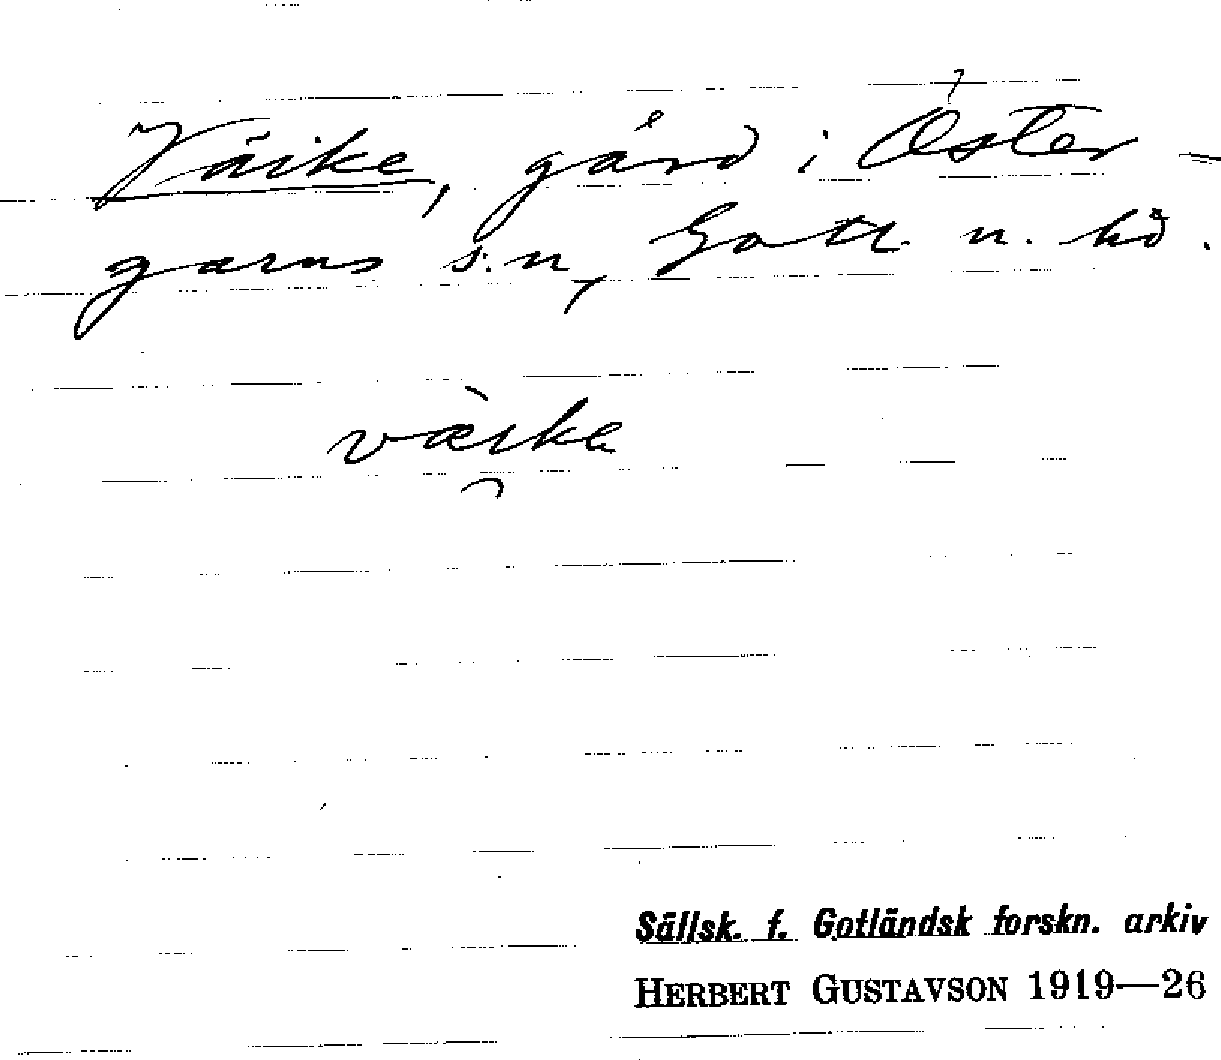 Värke, gård i Öster-
garns s:n, Gotl. n. hd.
värka
Sällsk. f. Gotländsk forskn. arkiv
HERBERT GUSTAVSON 1919—26